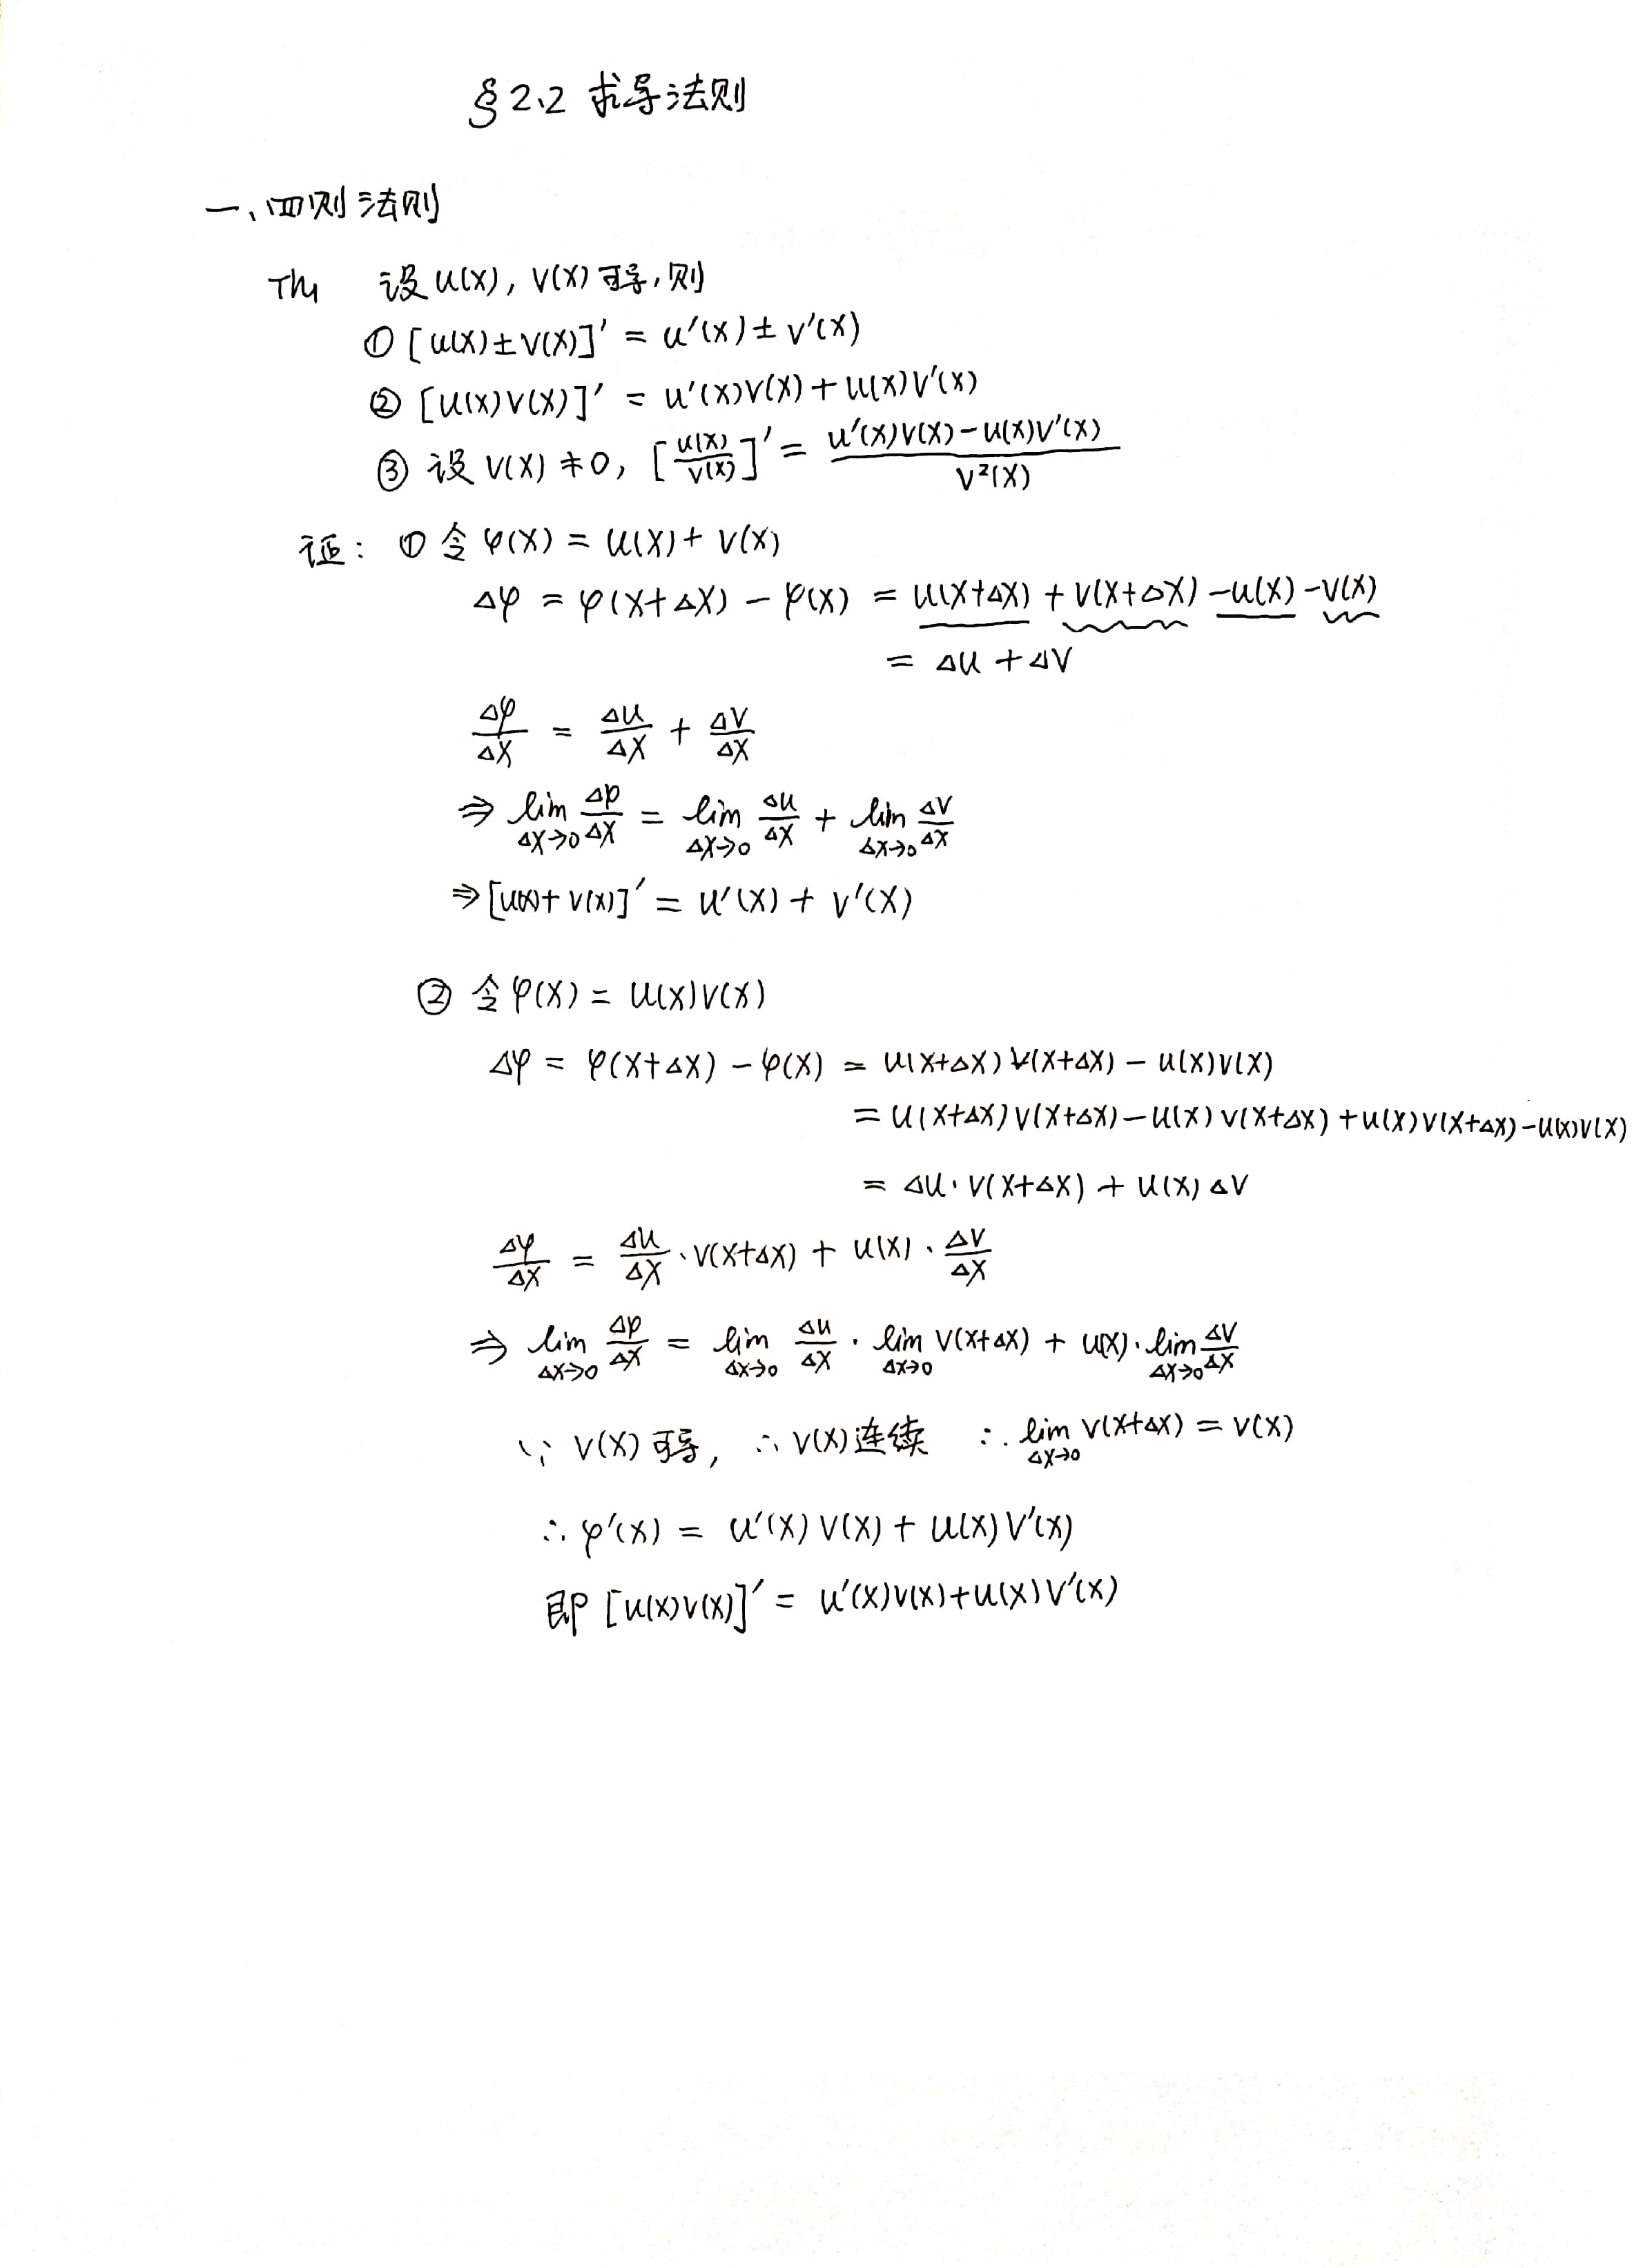 §2.2 求导法则
一、四则法则
Th1 设u(x), v(x)可导,则
① [u(x)±v(x)]′ = u′(x)±v′(x)
② [u(x)v(x)]′ = u′(x)v(x)+u(x)v′(x)
③ 设 v(x)≠0, [u(x)/v(x)]′ = (u′(x)v(x)-u(x)v′(x))/v²(x)
证: ① 令 φ(x) = u(x)+ v(x)
Δφ = φ(x+Δx) - φ(x) = u(x+Δx) + v(x+Δx) -u(x) -v(x)
= Δu +Δv
Δφ/Δx = Δu/Δx + Δv/Δx
⇒ lim_{Δx→0} Δφ/Δx = lim_{Δx→0} Δu/Δx + lim_{Δx→0} Δv/Δx
⇒ [u(x)+ v(x)]′ = u′(x) + v′(x)
② 令 φ(x) = u(x)v(x)
Δφ = φ(x+Δx) - φ(x) = u(x+Δx) v(x+Δx) - u(x)v(x)
= u(x+Δx) v(x+Δx) - u(x) v(x+Δx) + u(x)v(x+Δx) - u(x)v(x)
= Δu·v(x+Δx) + u(x)Δv
Δφ/Δx = Δu/Δx · v(x+Δx) + u(x) · Δv/Δx
⇒ lim_{Δx→0} Δφ/Δx = lim_{Δx→0} Δu/Δx · lim_{Δx→0} v(x+Δx) + u(x)· lim_{Δx→0} Δv/Δx
∵ v(x)可导, ∴ v(x)连续 ∴ lim_{Δx→0} v(x+Δx) = v(x)
∴ φ′(x) = u′(x) v(x) + u(x) v′(x)
即 [u(x)v(x)]′ = u′(x)v(x)+u(x)v′(x)